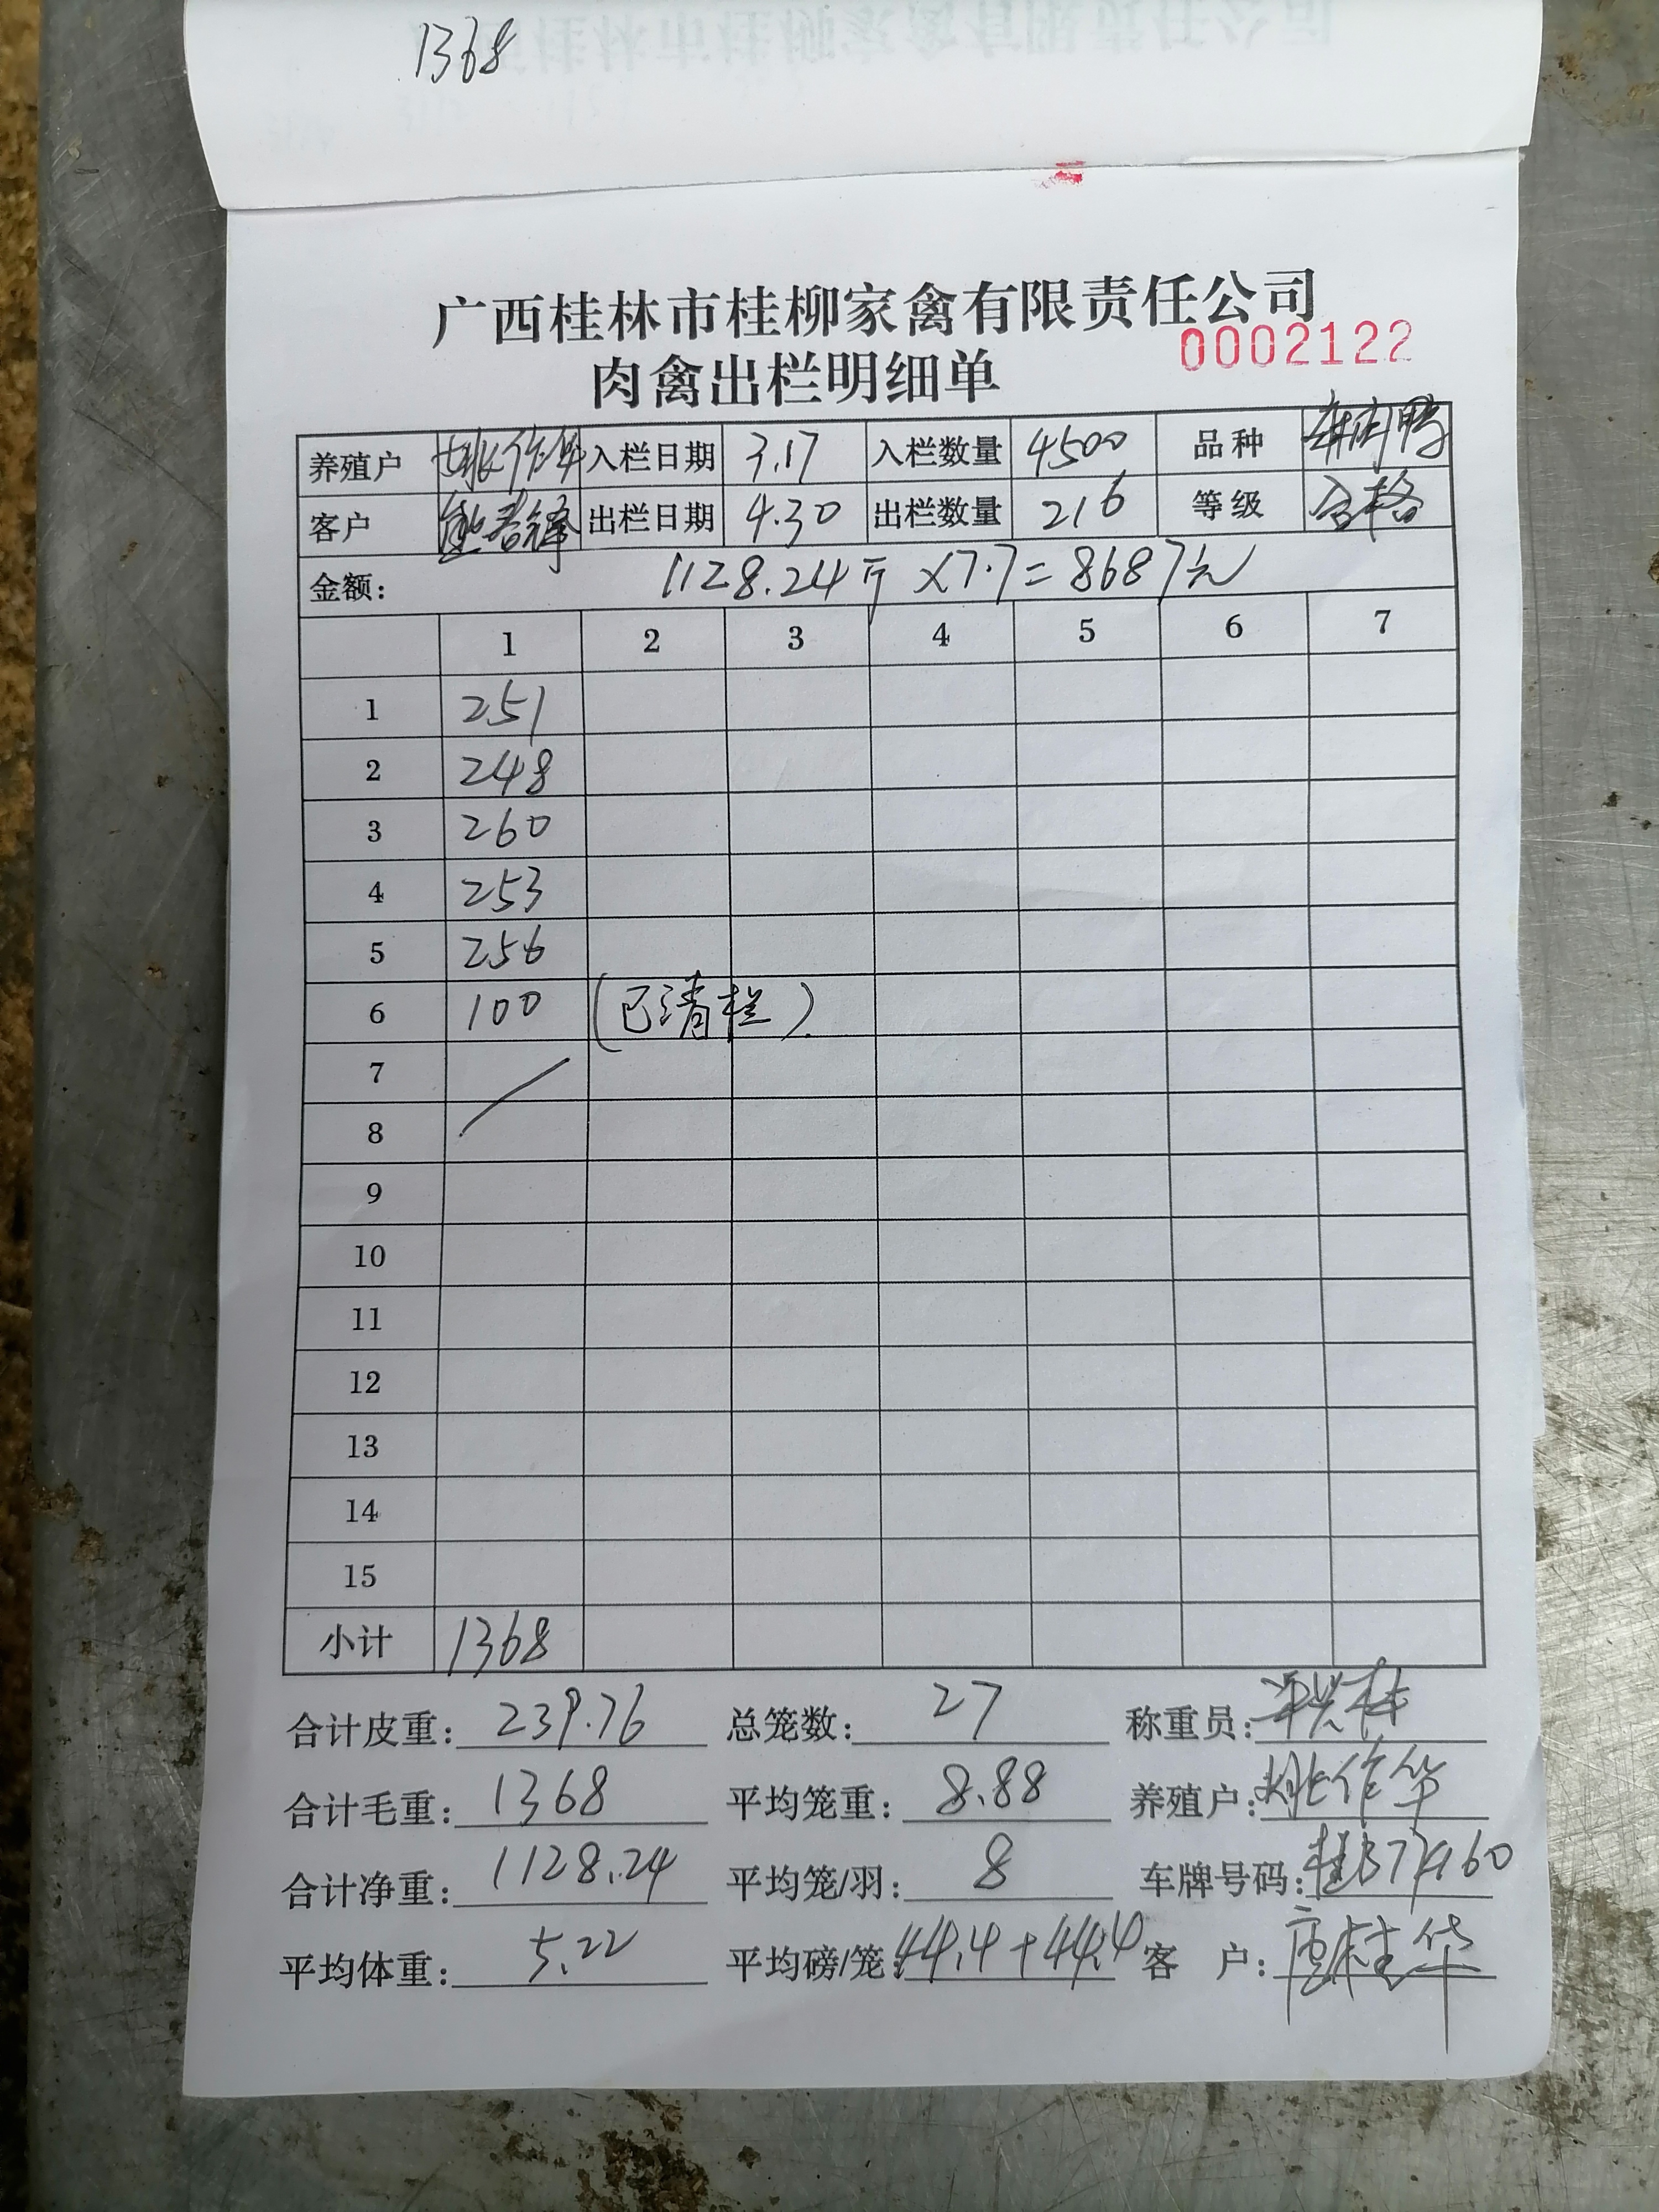 1368
广西桂林市桂柳家禽有限责任公司
0002122
肉禽出栏明细单
养殖户 姚作华 入栏日期 3.17 入栏数量 4500 品种
客户 出栏日期 4.30 出栏数量 216 等级 合格
金额: 1128.24斤×7.7=8687元
1 2 3 4 5 6 7
1 251
2 248
3 260
4 253
5 256
6 100 (已清栏)
7
8
9
10
11
12
13
14
15
小计 1368
合计皮重: 239.76 总笼数: 27 称重员:
合计毛重: 1368 平均笼重: 8.88 养殖户: 姚作华
合计净重: 1128.24 平均笼/羽: 8 车牌号码:
平均体重: 5.22 平均磅/笼: 44.4+44.4 客 户: 唐桂华